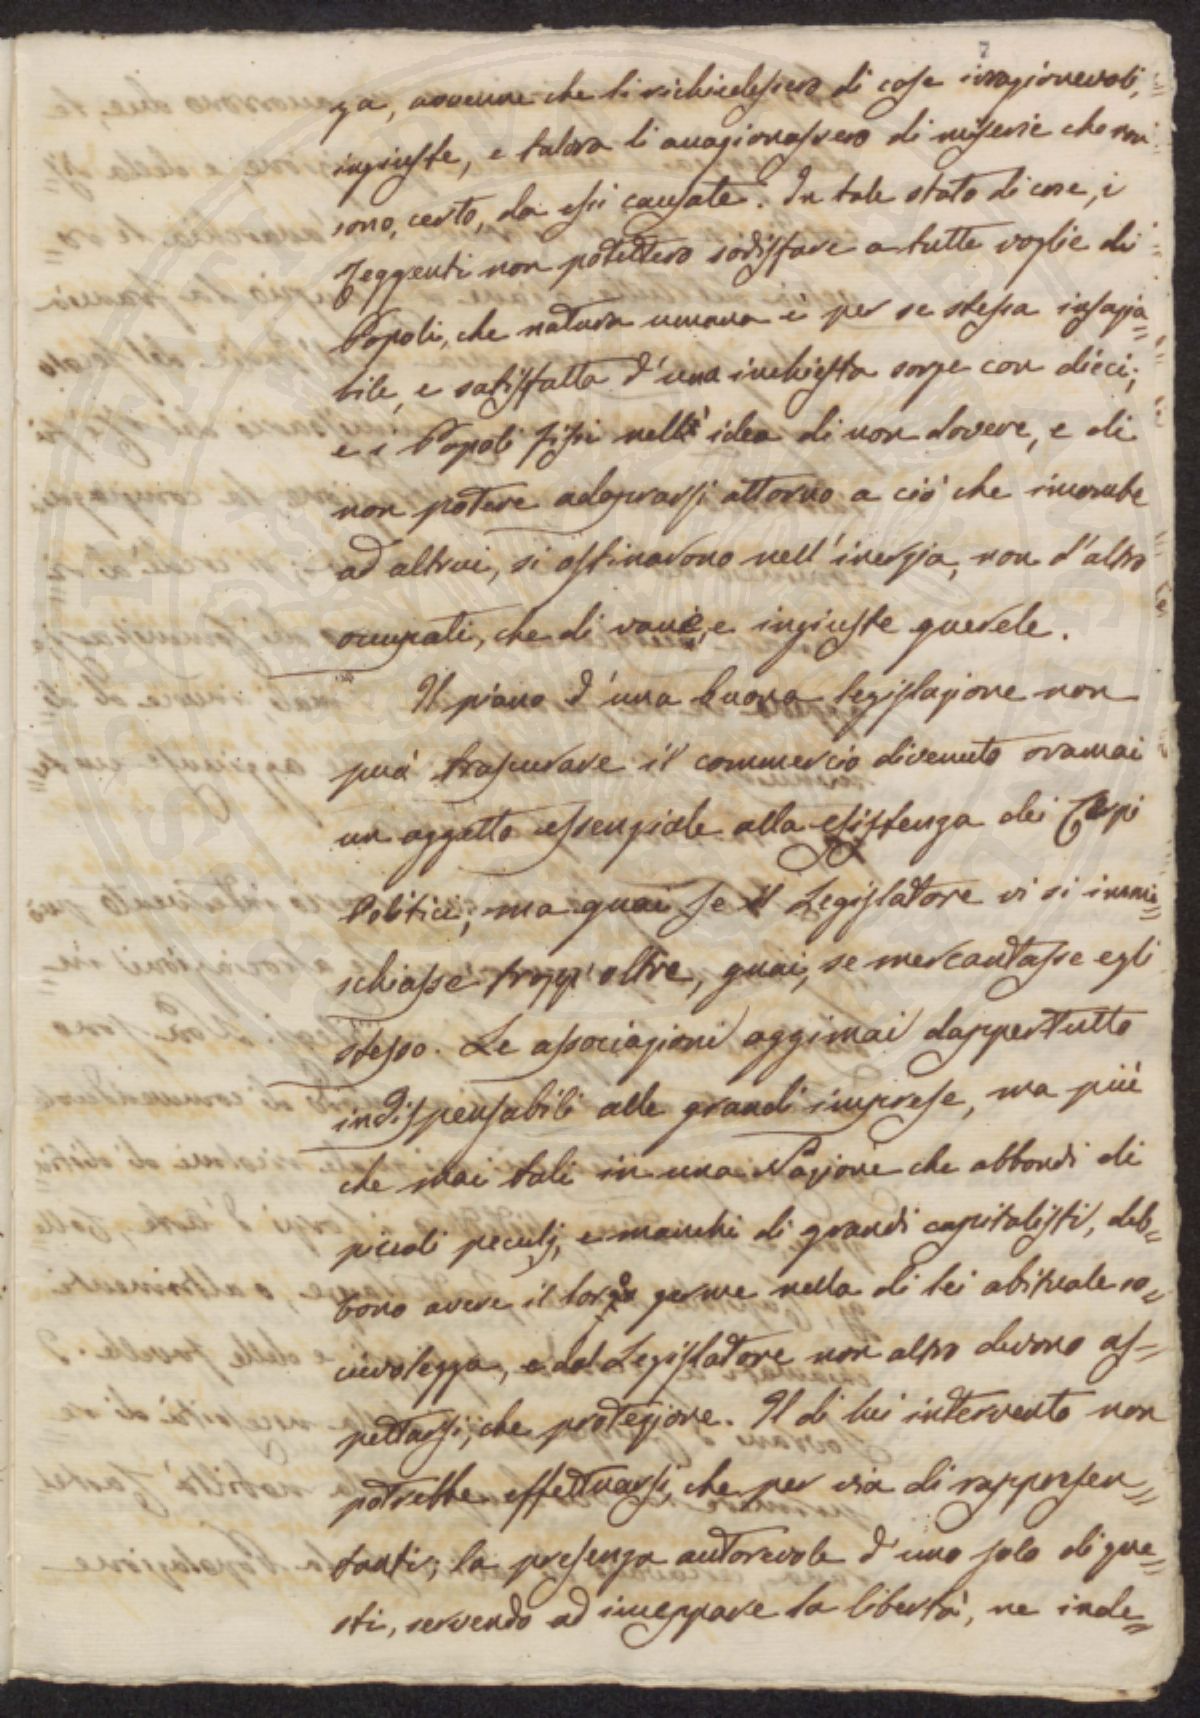 7
za, avvenne che li richiedessero di cose irragionevoli,
ingiuste, e talora li accagionassero di miserie che non
sono, certo, da essi causate. In tale stato di cose, i
Reggenti non potettero sodisfare a tutte voglie di
Popoli, che natura umana è per se stessa insazia=
bile, e satisfatta d'una inchiesta sorge con dieci;
e i Popoli fissi nell'idea di non dovere, e di
non potere adoprarsi attorno a ciò che incombe
ad altrui, si ostinarono nell'inerzia, non d'altro
occupati, che di vane, e ingiuste querele.
Il piano d'una buona legislazione non
può trascurare il commercio divenuto oramai
un oggetto essenziale alla esistenza dei Corpi
Politici; ma guai se il Legislatore vi si immi=
schiasse tropp'oltre, guai, se mercantasse egli
stesso. Le associazioni oggimai dappertutto
indispensabili alle grandi imprese, ma più
che mai tali in una Nazione che abbondi di
piccioli peculj, e manchi di grandi capitalisti, deb=
bono avere il loro germe nella di lei abituale so=
cievolezza, e dal Legislatore non altro devono as=
pettarsi, che protezione. Il di lui intervento non
potrebbe effettuarsi, che per via di rappresen=
tanti; la presenza autorevole d'uno solo di que=
sti, servendo ad inceppare la libertà, ne inde=